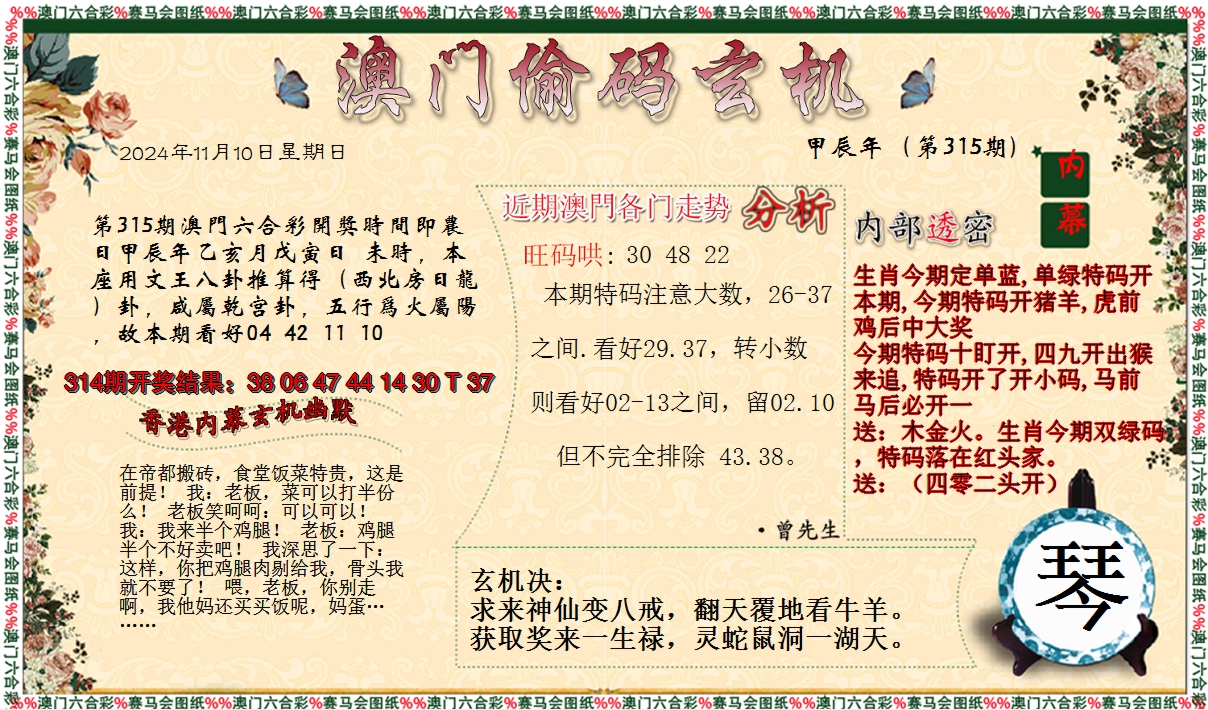 %%澳门六合彩%赛马会图纸%%澳门六合彩%赛马会图纸%%澳门六合彩%赛马会图纸%%澳门六合彩%赛马会图纸%%澳门六合彩%赛马会图纸%%澳门六合彩%赛马会图纸%%
澳门偷码玄机
2024年11月10日星期日
甲辰年（第315期）
内幕
第315期澳門六合彩開獎時間即農
日甲辰年乙亥月戊寅日 未時，本
座用文王八卦推算得（西北房日龍
）卦，咸屬乾宫卦，五行爲火屬陽
，故本期看好04 42 11 10
314期开奖结果：38 06 47 44 14 30 T 37
香港内幕玄机幽默
在帝都搬砖，食堂饭菜特贵，这是
前提！ 我：老板，菜可以打半份
么！ 老板笑呵呵：可以可以！
我：我来半个鸡腿！ 老板：鸡腿
半个不好卖吧！ 我深思了一下：
这样，你把鸡腿肉剔给我，骨头我
就不要了！ 喂，老板，你别走
啊，我他妈还买买饭呢，妈蛋…
……
近期澳門各门走势 分析
旺码哄：30 48 22
本期特码注意大数，26-37
之间.看好29.37，转小数
则看好02-13之间，留02.10
但不完全排除 43.38。
·曾先生
内部透密
生肖今期定单蓝,单绿特码开
本期,今期特码开猪羊,虎前
鸡后中大奖
今期特码十盯开,四九开出猴
来追,特码开了开小码,马前
马后必开一
送：木金火。生肖今期双绿码
，特码落在红头家。
送：（四零二头开）
玄机决：
求来神仙变八戒，翻天覆地看牛羊。
获取奖来一生禄，灵蛇鼠洞一湖天。
琴
%%澳门六合彩%赛马会图纸%%澳门六合彩%赛马会图纸%%澳门六合彩%赛马会图纸%%澳门六合彩%赛马会图纸%%澳门六合彩%赛马会图纸%%澳门六合彩%赛马会图纸%%